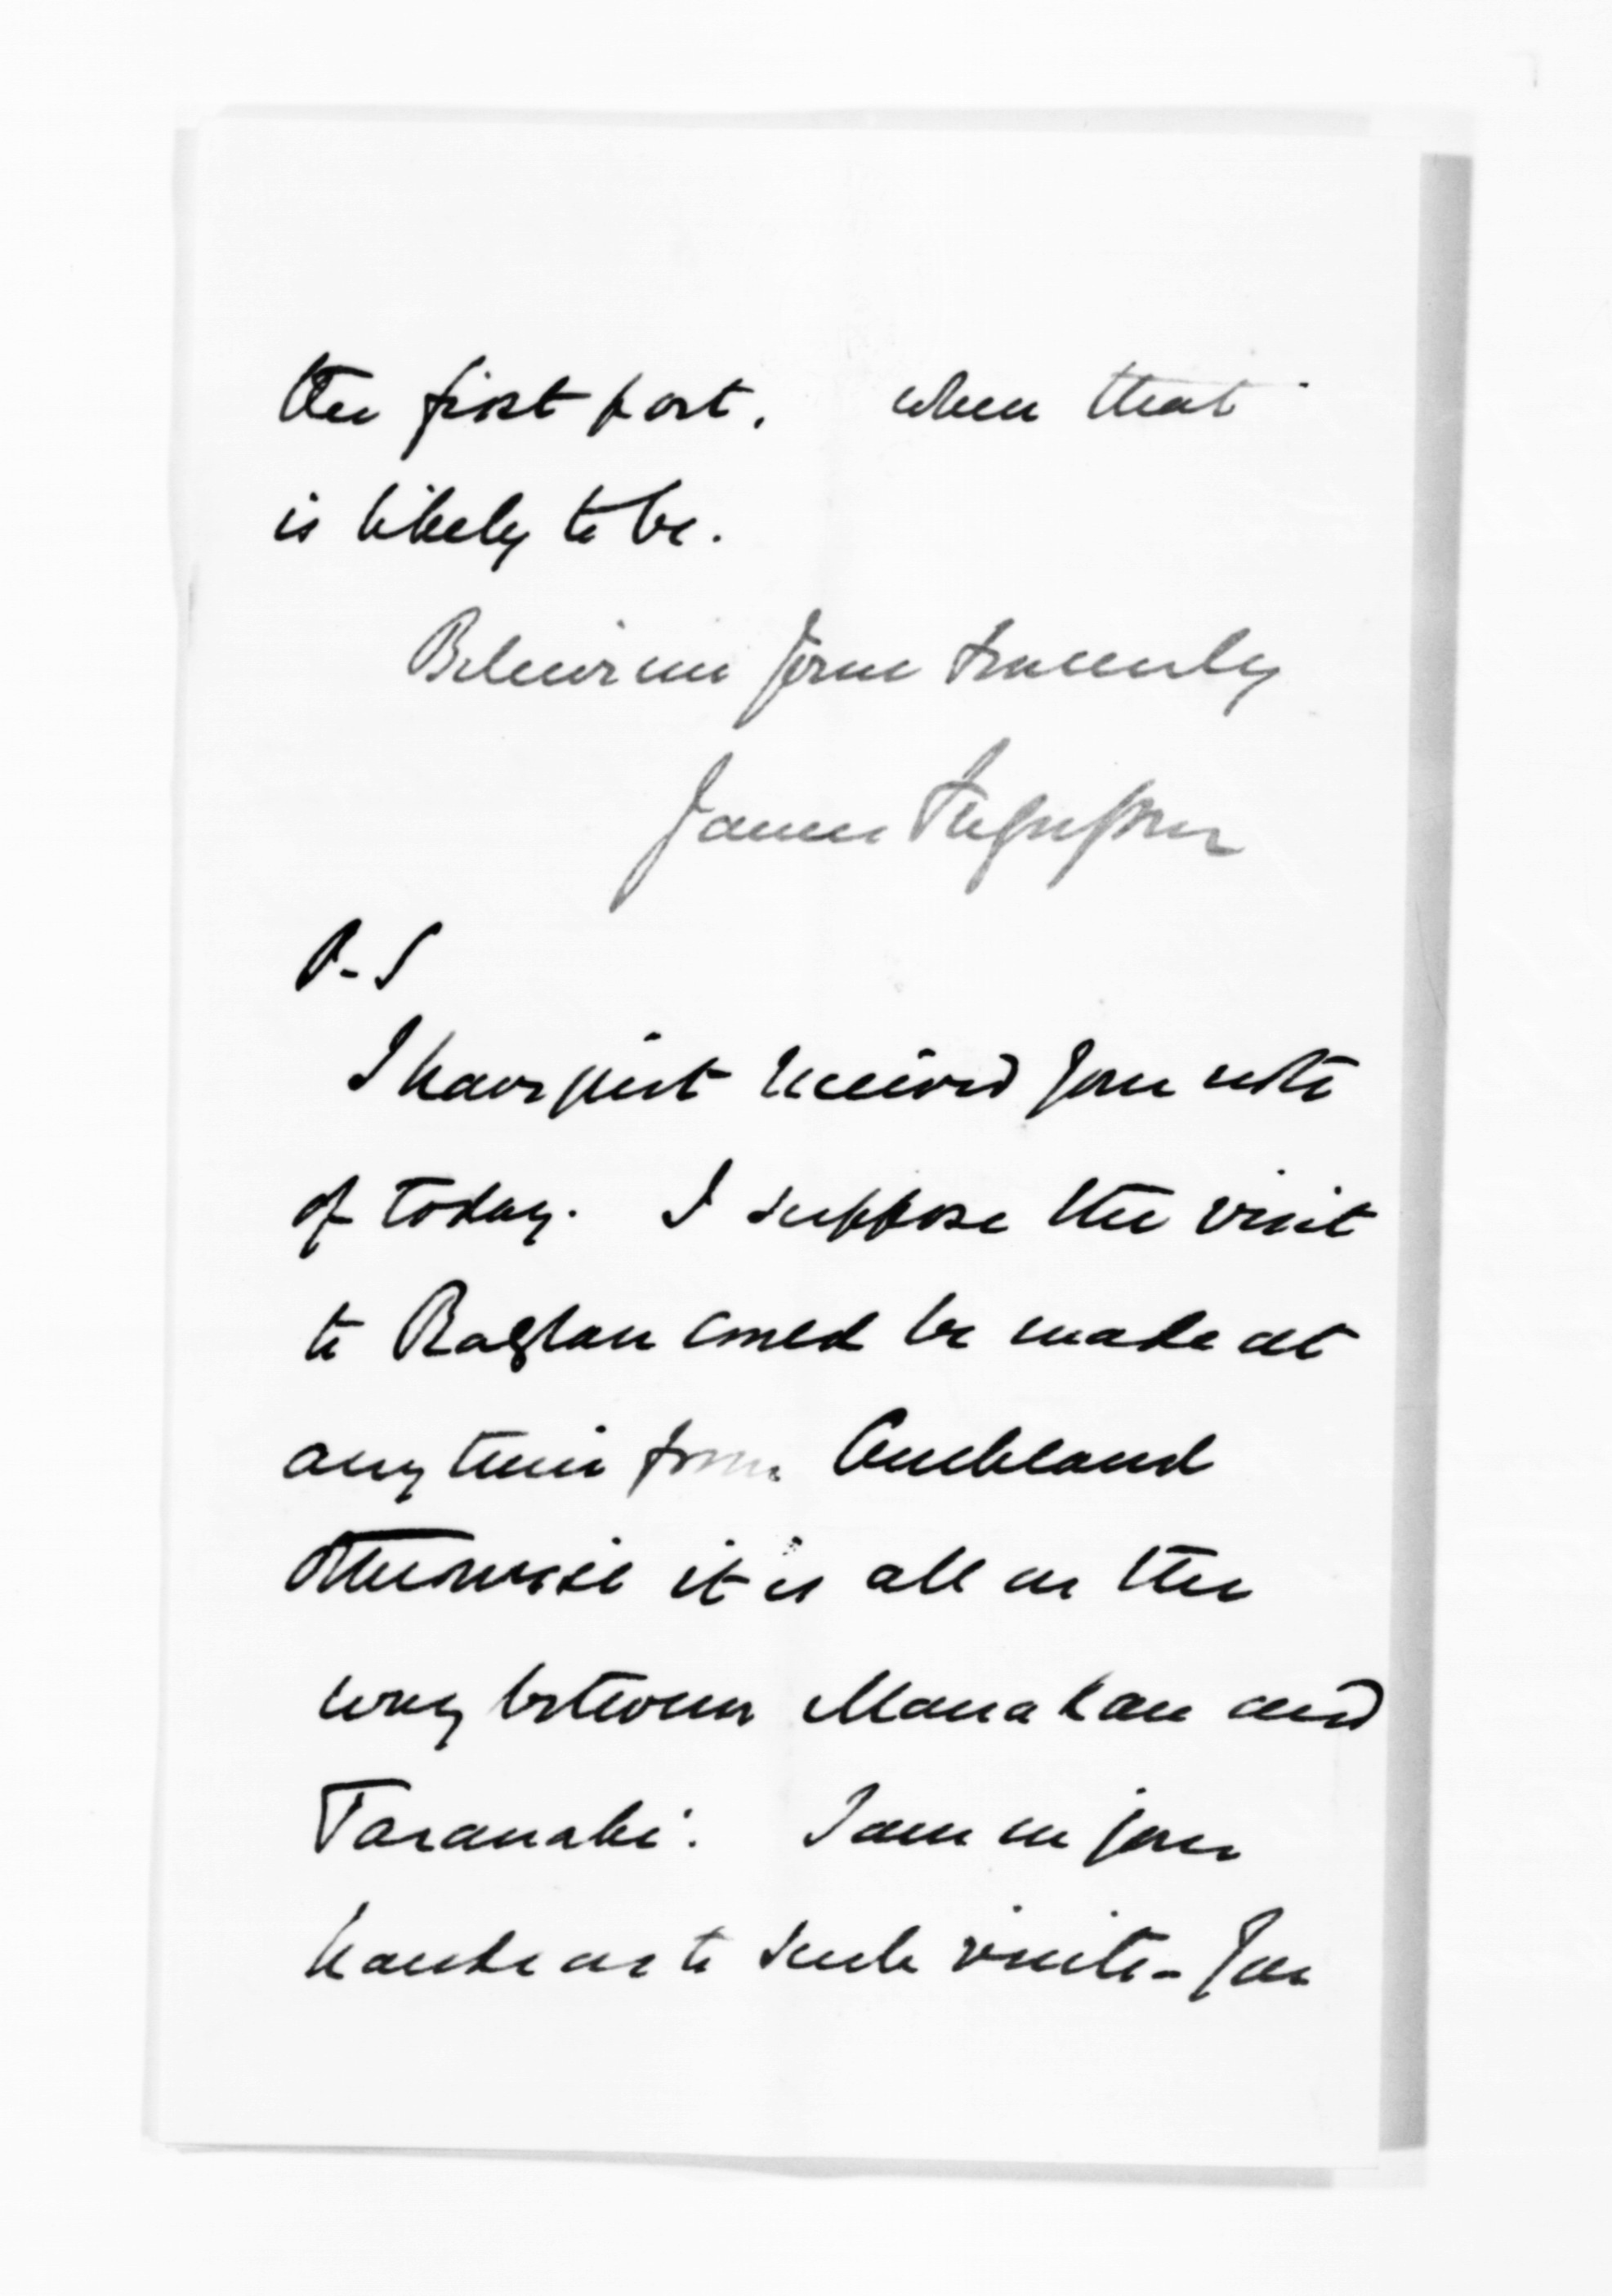 the first port. when that
is likely to be.
Believe me Yours sincerely
James Fergusson
P-S
I have just received your note
of today. I suppose the visit
to Raglan could be made at
any time from Auckland
Otherwise it is all on the
way between Manakau and
Taranaki. I am in your
hands as to such visits - You